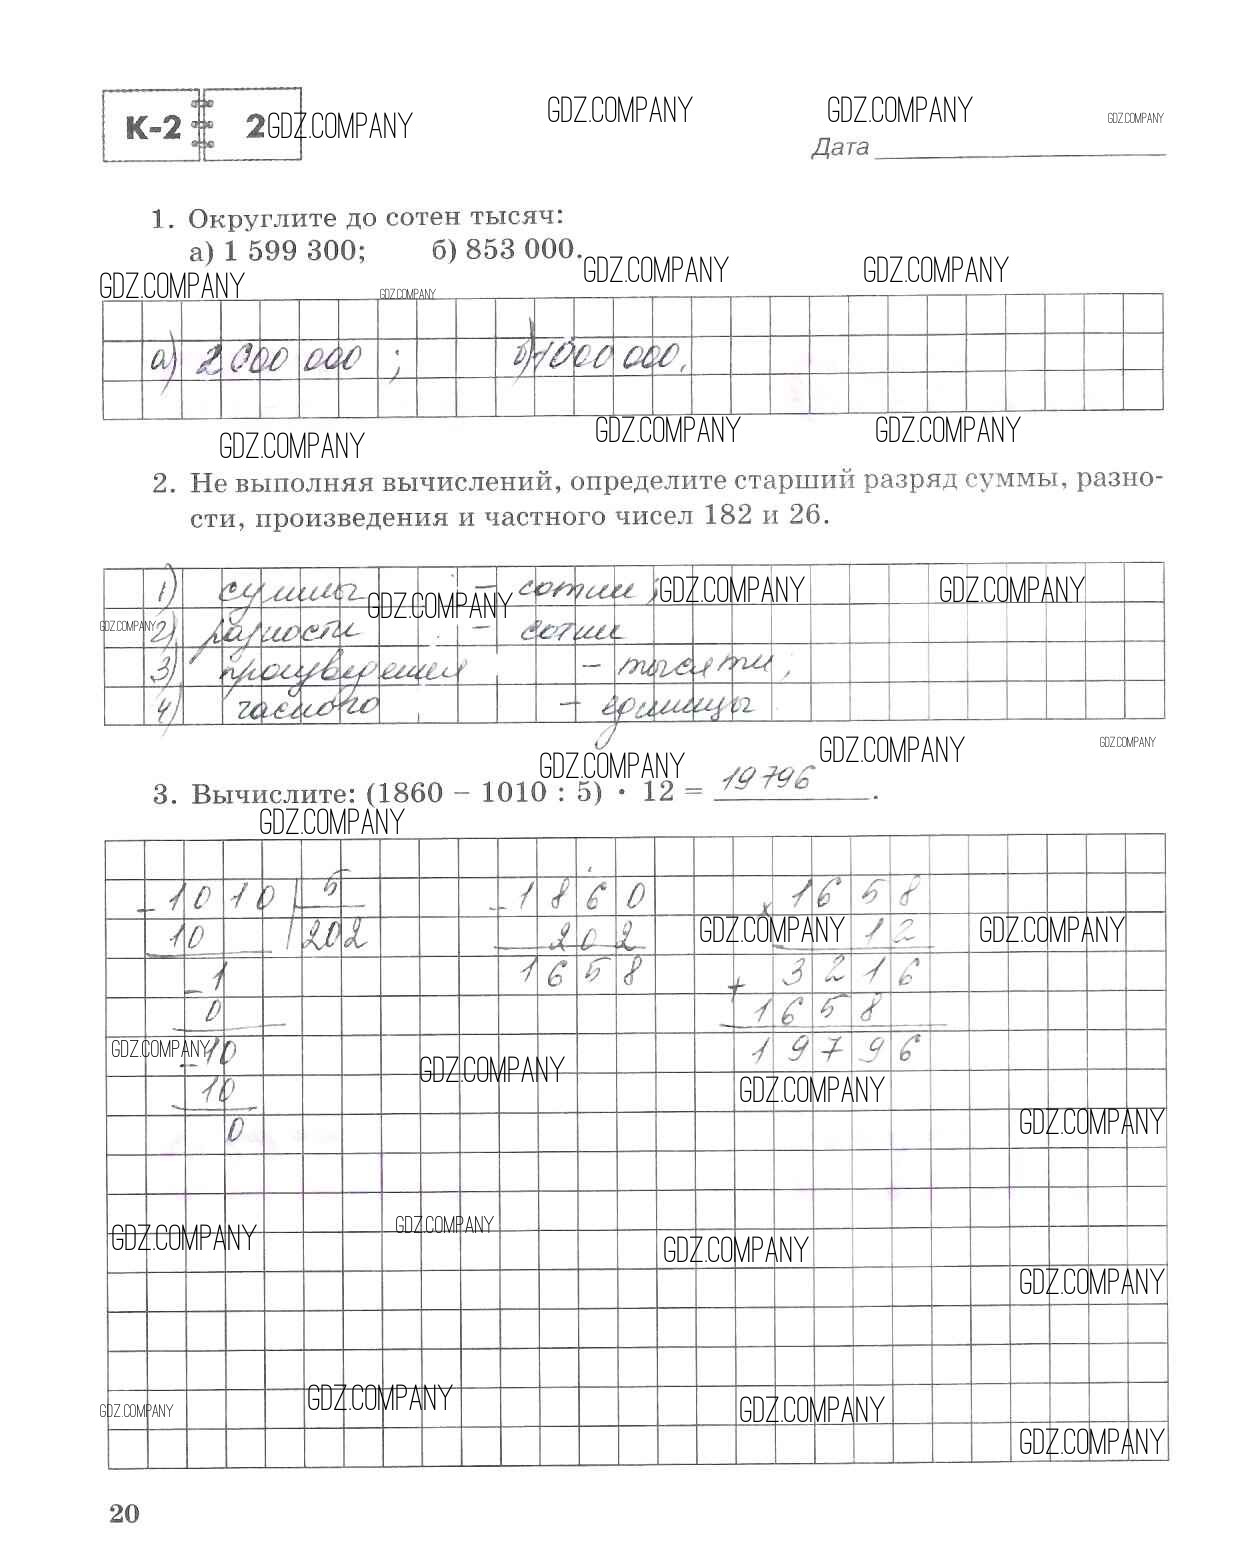 К-2 2 GDZ.COMPANY GDZ.COMPANY GDZ.COMPANY GDZ.COMPANY
Дата
1. Округлите до сотен тысяч:
а) 1 599 300; б) 853 000.
GDZ.COMPANY GDZ.COMPANY GDZ.COMPANY GDZ.COMPANY
а) 2 000 000 ; б) 1000 000.
GDZ.COMPANY GDZ.COMPANY GDZ.COMPANY
2. Не выполняя вычислений, определите старший разряд суммы, разно-
сти, произведения и частного чисел 182 и 26.
1) суммы - сотни; GDZ.COMPANY GDZ.COMPANY GDZ.COMPANY
GDZ.COMPANY 2) разности - сотни
3) произведения - тысячи;
4) часного - единицы
GDZ.COMPANY GDZ.COMPANY GDZ.COMPANY
3. Вычислите: (1860 – 1010 : 5) · 12 = 19796.
GDZ.COMPANY
- 1010 5 - 1860 × 1658
10 202 202 12 GDZ.COMPANY GDZ.COMPANY
- 1 1658 + 3216
0 1658
GDZ.COMPANY - 10 19796
GDZ.COMPANY
10 GDZ.COMPANY
0 GDZ.COMPANY
GDZ.COMPANY GDZ.COMPANY GDZ.COMPANY
GDZ.COMPANY
GDZ.COMPANY GDZ.COMPANY GDZ.COMPANY
GDZ.COMPANY
20